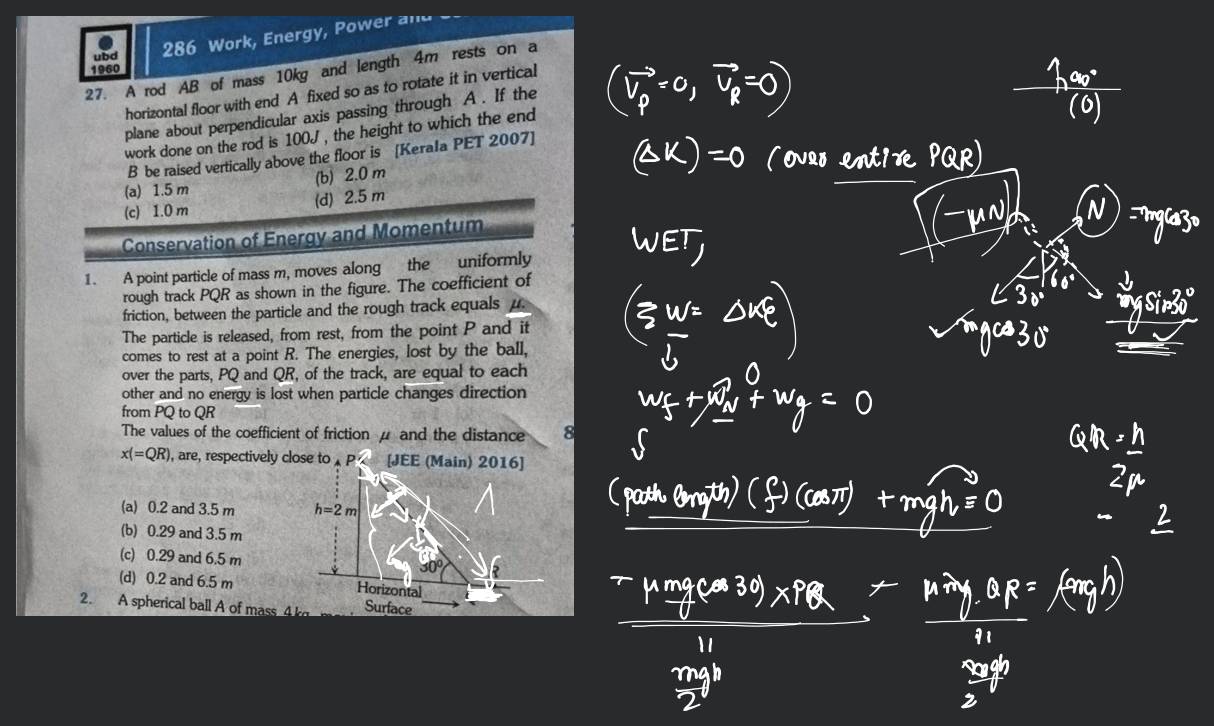 ubd
1960
286 Work, Energy, Power and
27. A rod AB of mass 10kg and length 4m rests on a
horizontal floor with end A fixed so as to rotate it in vertical
plane about perpendicular axis passing through A. If the
work done on the rod is 100J, the height to which the end
B be raised vertically above the floor is [Kerala PET 2007]
(a) 1.5 m (b) 2.0 m
(c) 1.0 m (d) 2.5 m
Conservation of Energy and Momentum
1. A point particle of mass m, moves along the uniformly
rough track PQR as shown in the figure. The coefficient of
friction, between the particle and the rough track equals μ.
The particle is released, from rest, from the point P and it
comes to rest at a point R. The energies, lost by the ball,
over the parts, PQ and QR, of the track, are equal to each
other and no energy is lost when particle changes direction
from PQ to QR
The values of the coefficient of friction μ and the distance
x(=QR), are, respectively close to [JEE (Main) 2016]
P
(a) 0.2 and 3.5 m
(b) 0.29 and 3.5 m
(c) 0.29 and 6.5 m
(d) 0.2 and 6.5 m
h=2 m
30°
R
mg
f
Horizontal
Surface
2. A spherical ball A of mass 4 kg,
8
(V⃗p=0, V⃗R=0)
90°
(0)
(ΔK)=0 (over entire PQR)
(-μN)
N = mgcos30
30° 60°
mgsin30°
mgcos30°
WET,
(ΣW = ΔKE)
Wf + WN + Wg = 0
0
(path length) (f) (cosπ) + mgh = 0
QR = h
2μ
2
- μmgcos30) × PQ + μmg.QR = (mgh)
mgh
2
mgh
2